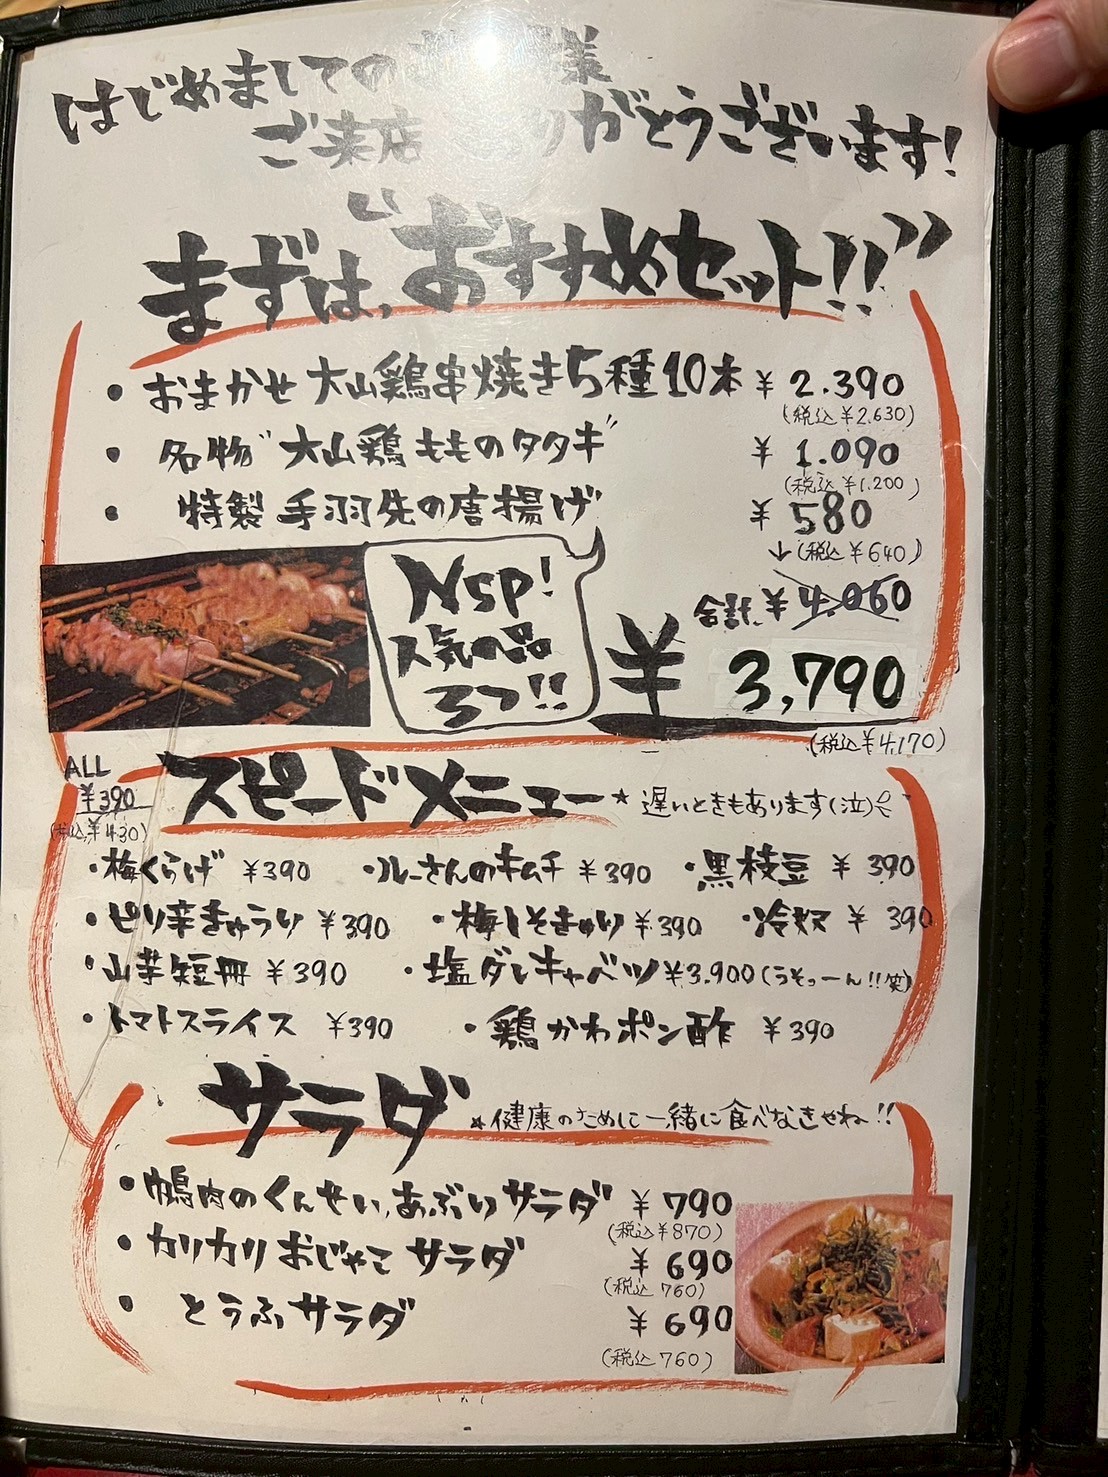 はじめましてのお 様
ご来店 りがとうございます!
まずは,“おすすめセット!!”
・おまかせ 大山鶏串焼き5種10本 ¥2.390
(税込¥2.630)
・名物“大山鶏もものタタキ” ¥1.090
(税込¥1.200)
・特製 手羽先の唐揚げ ¥580
↓(税込¥640)
合計 ¥4.060
NSP!
人気の品
3つ!!
¥3,790
(税込¥4,170)
ALL
¥390
(税込¥430)
スピードメニュー ★遅いときもあります(泣)
・梅くらげ ¥390 ・ルーさんのキムチ ¥390 ・黒枝豆 ¥390
・ピリ辛きゅうり ¥390 ・梅しそきゅうり ¥390 ・冷奴 ¥390
・山芋短冊 ¥390 ・塩ダレキャベツ ¥3.900(うそっーん!!笑)
・トマトスライス ¥390 ・鶏かわポン酢 ¥390
サラダ ★健康のために一緒に食べなきゃね!!
・鴨肉のくんせい,あぶりサラダ ¥790
(税込¥870)
・カリカリおじゃこサラダ ¥690
(税込760)
・とうふサラダ ¥690
(税込760)